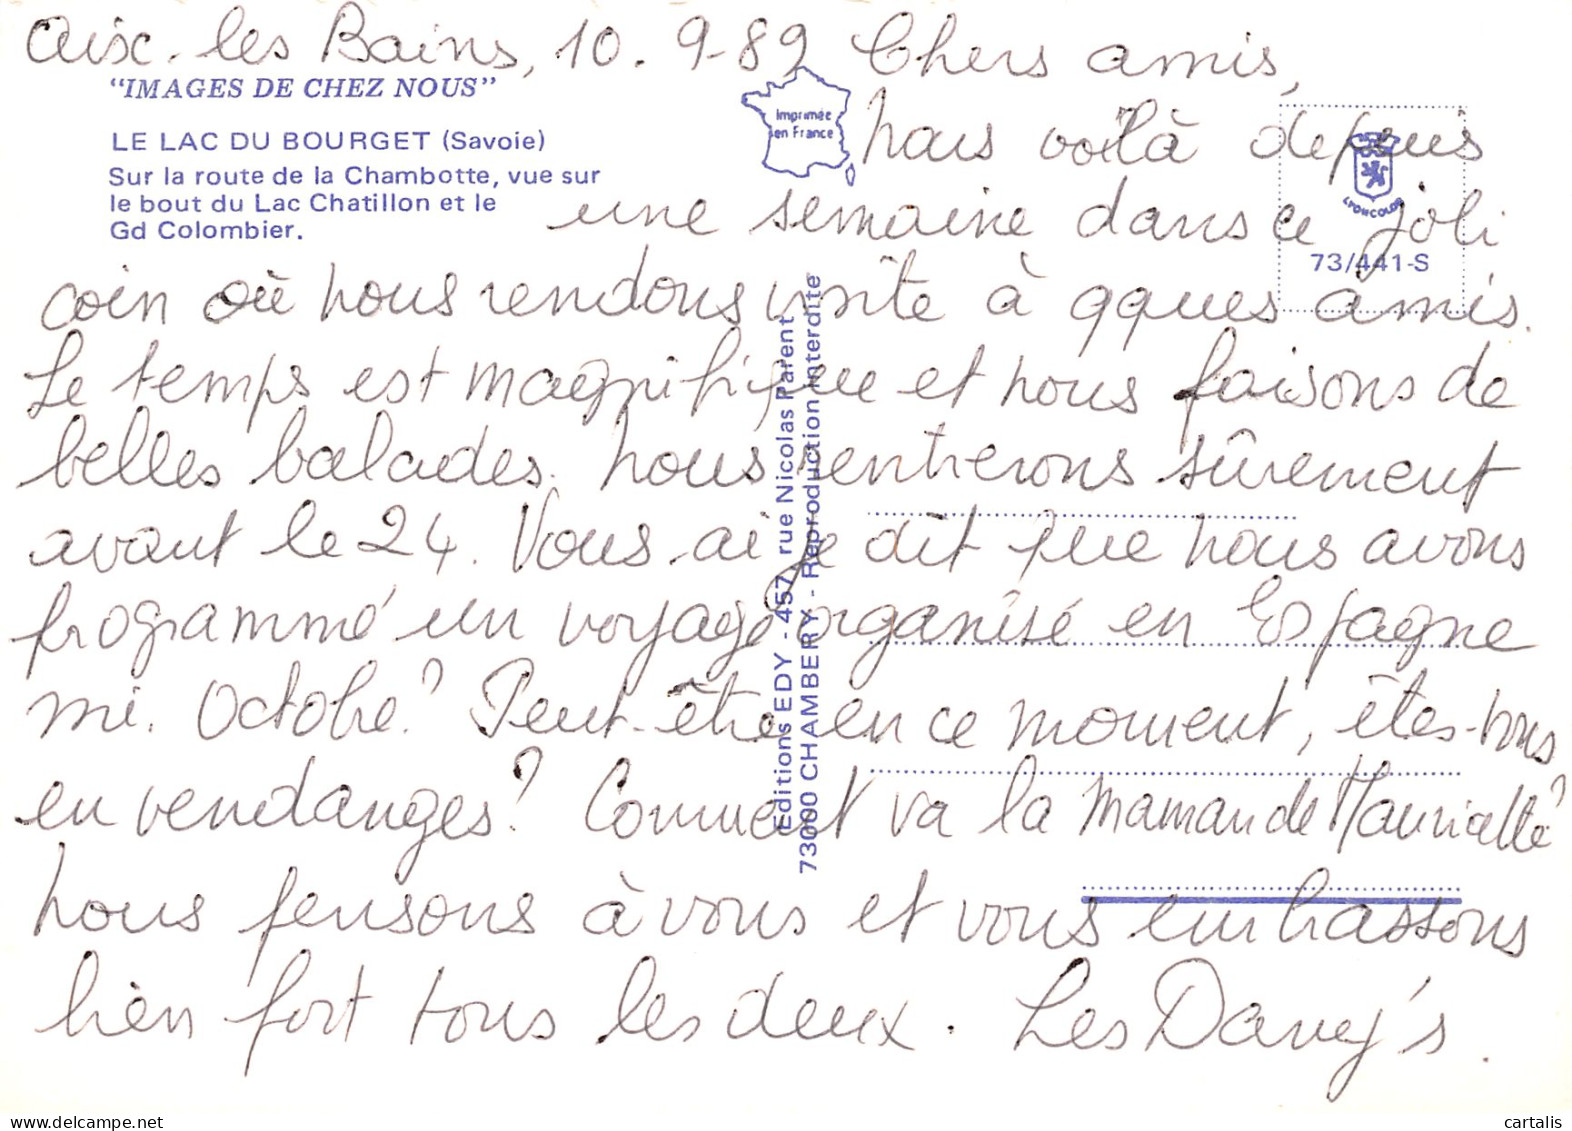 Aix-les Bains, 10. 9-89 Chers amis,
"IMAGES DE CHEZ NOUS"
LE LAC DU BOURGET (Savoie)
Sur la route de la Chambotte, vue sur
le bout du Lac Chatillon et le
Gd Colombier.
Imprimée
en France
LYONCOLOR
73/441-S
nous voilà depuis
une semaine dans ce joli
coin où nous rendons visite à qques amis.
Le temps est magnifique et nous faisons de
belles balades. Nous rentrerons sûrement
avant le 24. Vous ai je dit que nous avons
programmé un voyage organisé en Espagne
mi. Octobre? Peut-être en ce moment, êtes-vous
en vendanges? Comment va la maman de Mauricette?
Nous pensons à vous et vous embrassons
bien fort tous les deux. Les Davy's.
Editions EDY - 457, rue Nicolas Parent
73000 CHAMBERY - Reproduction interdite
delcampe.net
cartalis